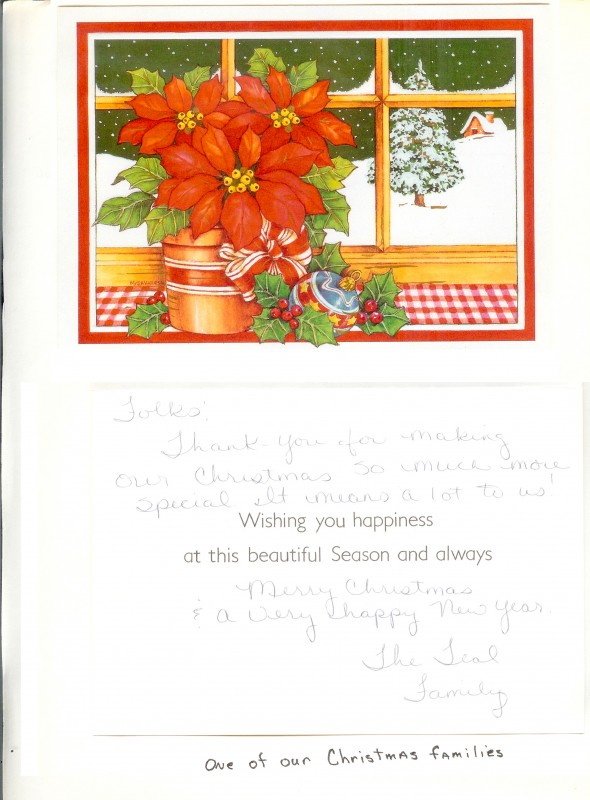 Folks!
Thank-you for making
our Christmas so much more
special. It means a lot to us!
Wishing you happiness
at this beautiful Season and always
Merry Christmas
& a very happy New Year.
The Teal
Family
One of our Christmas families